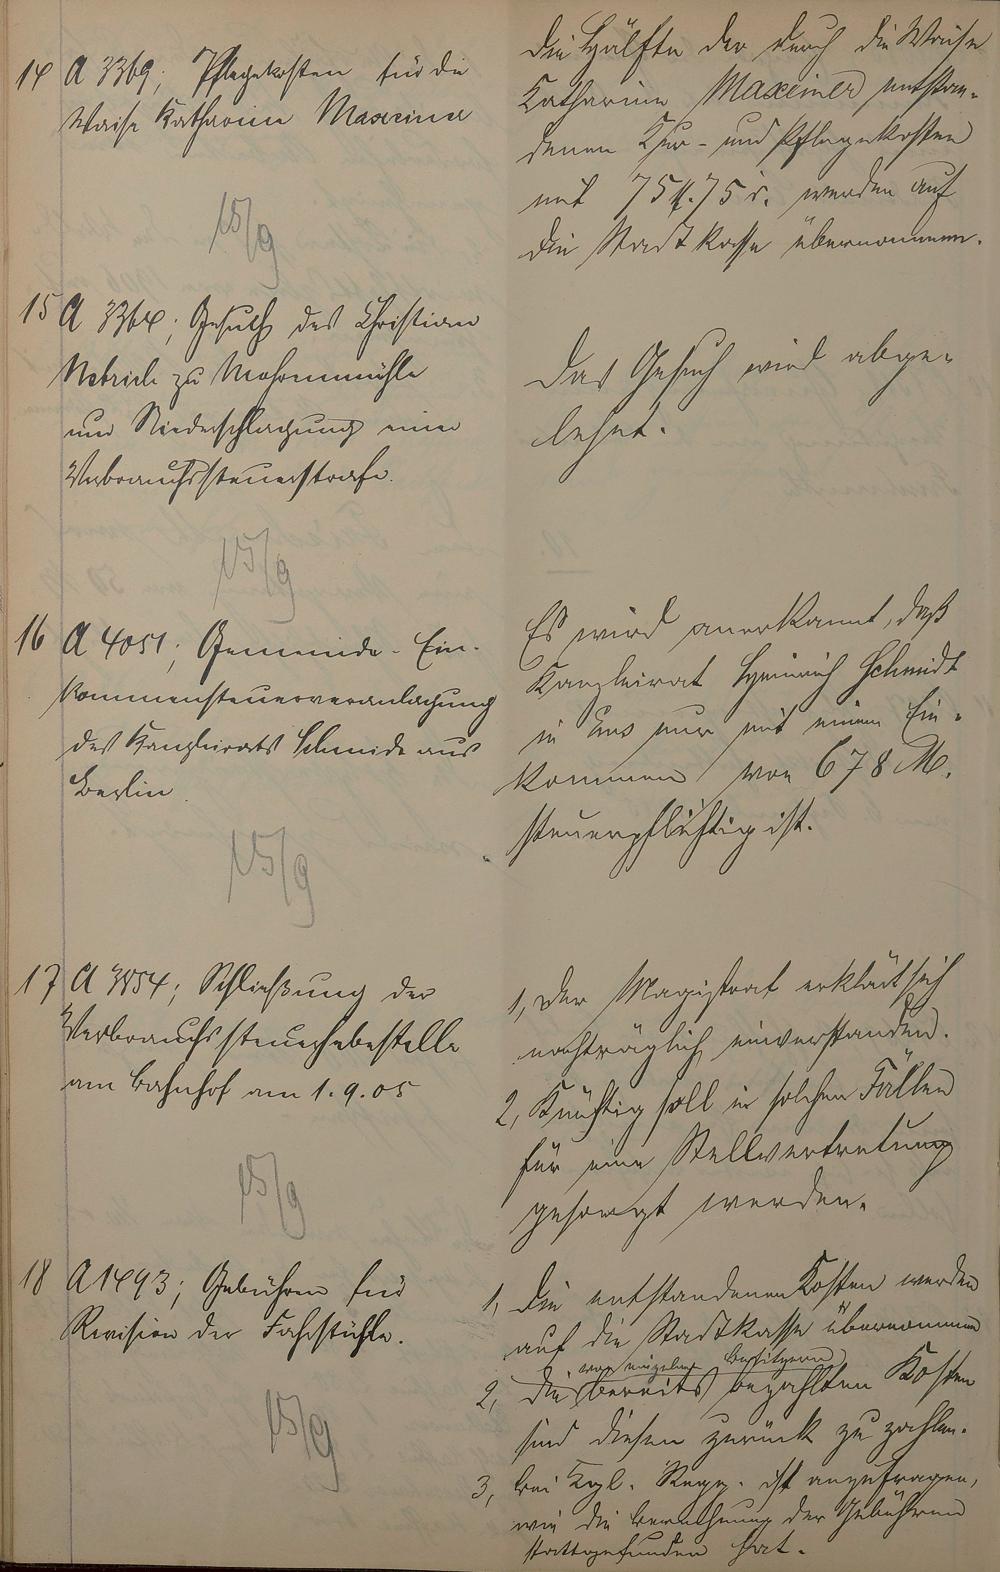 14 A 3369; Pflegekosten für die
Waise Katharine Maxeiner
15/9
die Hälfte der durch die Waise
Katharine Maxeiner entstan-
denen Kur- und Pflegekosten
mit 75 M. 75 d. werden auf
die Stadtkasse übernommen.
15 A 3364; Gesuch des Christian
zu
um Niederschlagung einer
Verbrauchssteuerstrafe.
15/9
Das Gesuch wird abge-
lehnt.
16 A 4051; Gemeinde-Ein-
kommensteuerveranlagung
des Kanzleirats Schmidt aus
Berlin
15/9
Es wird anerkannt, daß
Kanzleirat Heinrich Schmidt
in Ems nur mit einem Ein-
kommen von 678 M.
steuerpflichtig ist.
17 A 3854; Schließung der
Verbrauchssteuerhebestelle
am Bahnhof am 1.9.05
15/9
1, Der Magistrat erklärt sich
nachträglich einverstanden.
2, Künftig soll in solchen Fällen
für eine Stellvertretung
gesorgt werden.
18 A 1493; Gebühren für
Revision der Fahrstühle.
15/9
1, Die entstandenen Kosten werden
auf die Stadtkasse übernommen
von einzelnen Besitzern
2, Die bereits bezahlten Kosten
sind diesen zurück zu zahlen.
3, bei Kgl. Regg. ist anzufragen,
wie die Berechnung der Gebühren
stattgefunden hat.